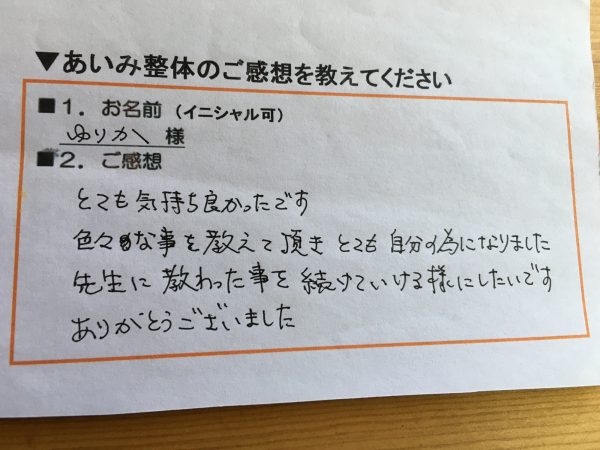 ▼あいみ整体のご感想を教えてください
■1．お名前（イニシャル可）
ゆりか 様
■2．ご感想
とても気持ち良かったです
色々な事を教えて頂き とても 自分の為になりました
先生に 教わった事を 続けていける様にしたいです
ありがとうございました